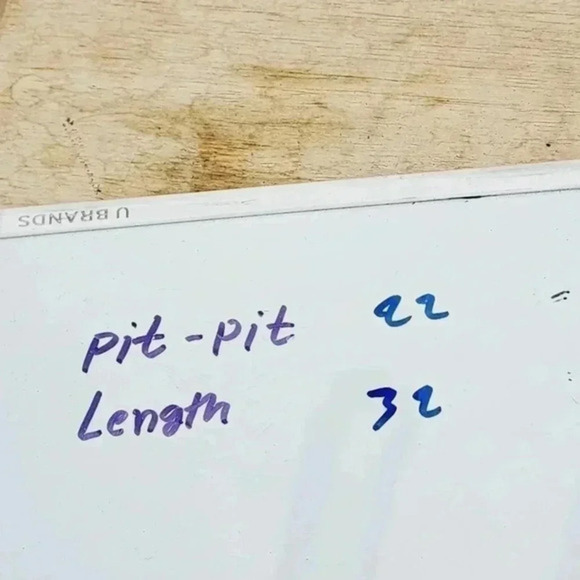 U BRANDS
pit-pit 22
Length 32